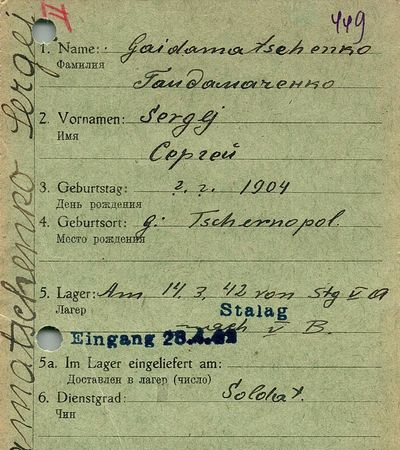 II
449
1. Name: Gaidamatschenko
Фамилия
Гайдамаченко
2. Vornamen: Sergej
Имя
Сергей
3. Geburtstag: ?. ?. 1904
День рождения
4. Geburtsort: g. Tschernopol.
Место рождения
5. Lager: Am 14. 3. 42 von Stg V A
Лагер
Stalag
nach V B.
Eingang 28.4.42
5a. Im Lager eingeliefert am:
Доставлен в лагер (число)
6. Dienstgrad: Soldat.
Чин
matschenko Sergej